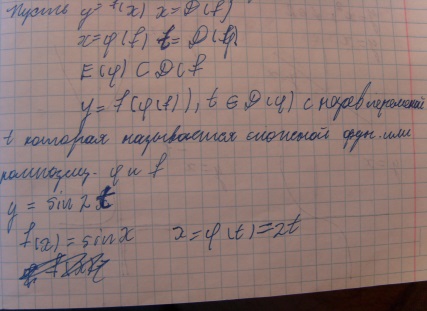 Пусть y = f(x) x = D(f)
x = φ(f) t = D(φ)
E(φ) ⊂ D(f
y = f(φ(t)), t ∈ D(φ) с незав переменной
t которая называется сложной фун. или
композиц. φ и f
y = sin 2t
f(x) = sin x x = φ(t) = 2t